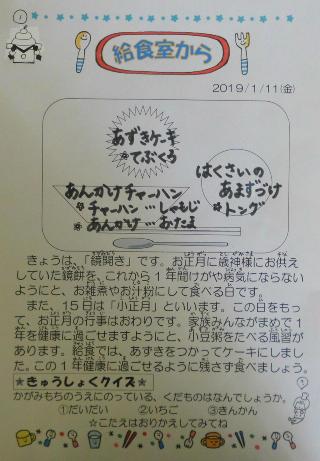 給食室から
2019/1/11(金)
あずきケーキ
☆てぶくろ
はくさいの
あまずづけ
☆トング
あんかけチャーハン
☆チャーハン…しゃもじ
☆あんかけ…おたま
きょうは、「鏡開き」です。お正月に歳神様にお供え
していた鏡餅を、これから1年間けがや病気にならない
ようにと、お雑煮やお汁粉にして食べる日です。
また、15日は「小正月」といいます。この日をもっ
て、お正月の行事はおわりです。家族みんながまめで1
年を健康に過ごせますようにと、小豆粥をたべる風習が
あります。給食では、あずきをつかってケーキにしまし
た。この1年健康に過ごせるように残さず食べましょう。
★きゅうしょくクイズ★
かがみもちのうえにのっている、くだものはなんでしょうか。
①だいだい ②いちご ③きんかん
☆こたえはおりかえしてみてね